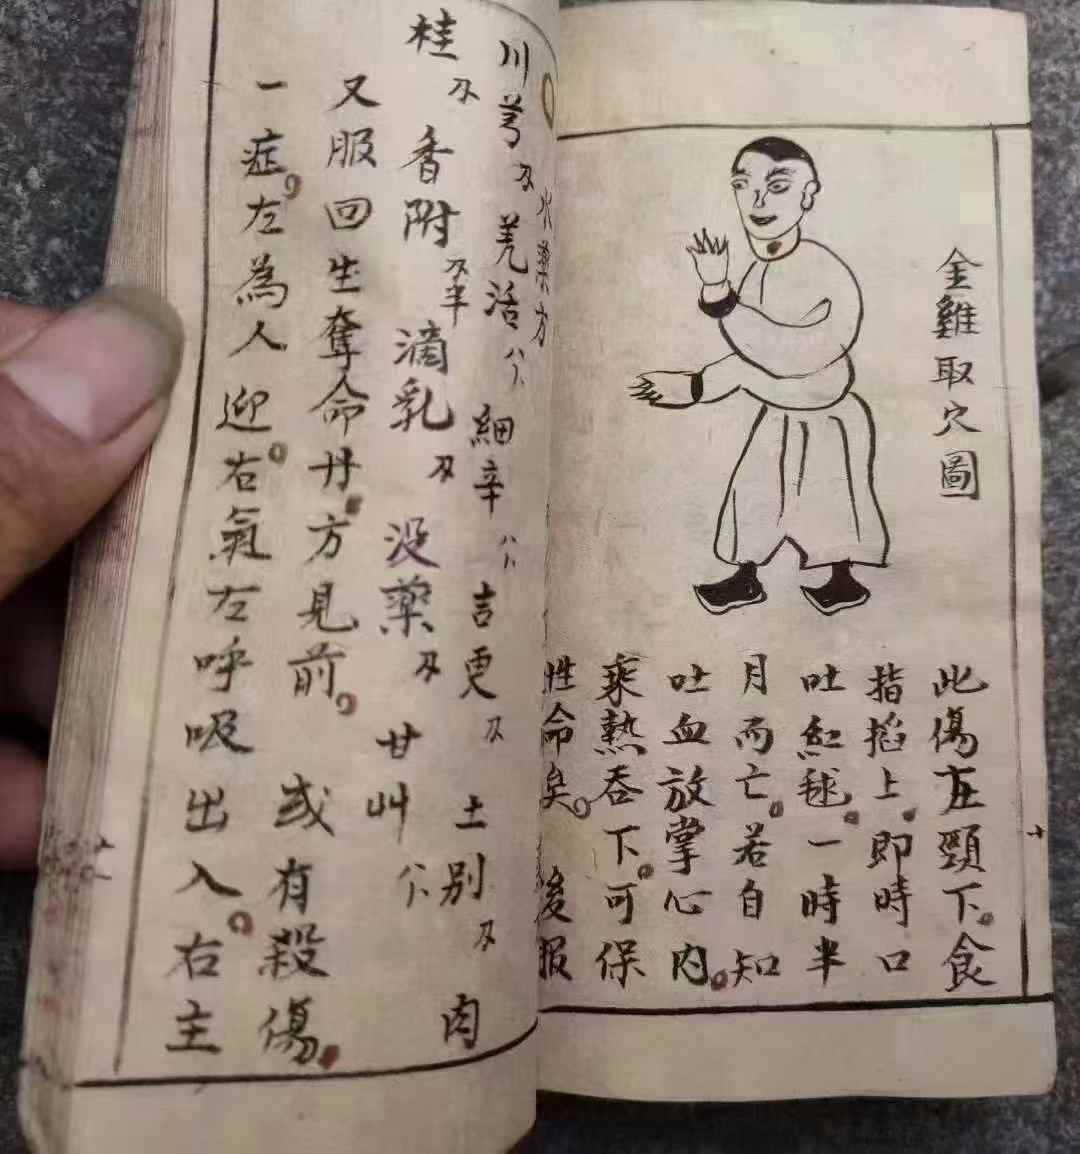 金雞取穴圖
此傷在頸下。食
指掐上。即時口
吐紅毬。一時半
月而亡。若自知
吐血放掌心內。
乘熱吞下。可保
性命矣。 後服
十
水藥方
川芎 刄 羌活 八卜 細辛 八卜 吉更 刄 土別 刄 肉
桂 刄 香附 刄半 滴乳 刄 没藥 刄 甘艸 卜
又服回生奪命丹。方見前。 或有殺傷。
一症。左為人迎。右氣左呼吸出入。右主